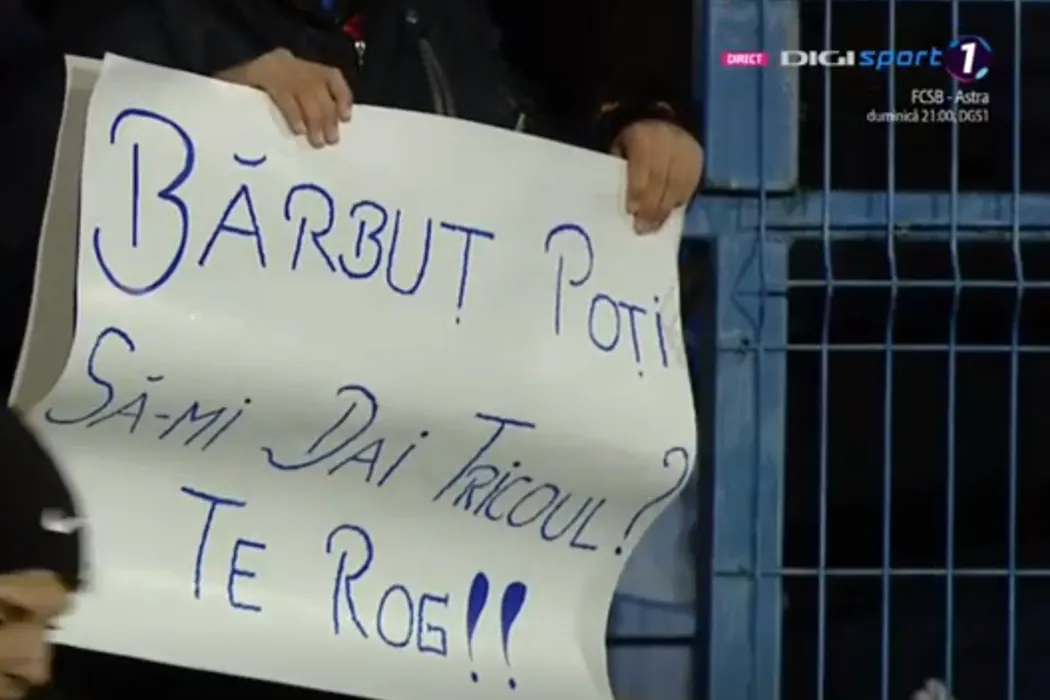 DIRECT DIGI sport 1
FCSB - Astra
duminică 21:00, DGS1
BĂRBUȚ POȚI
SĂ-MI DAI TRICOUL?
TE ROG!!